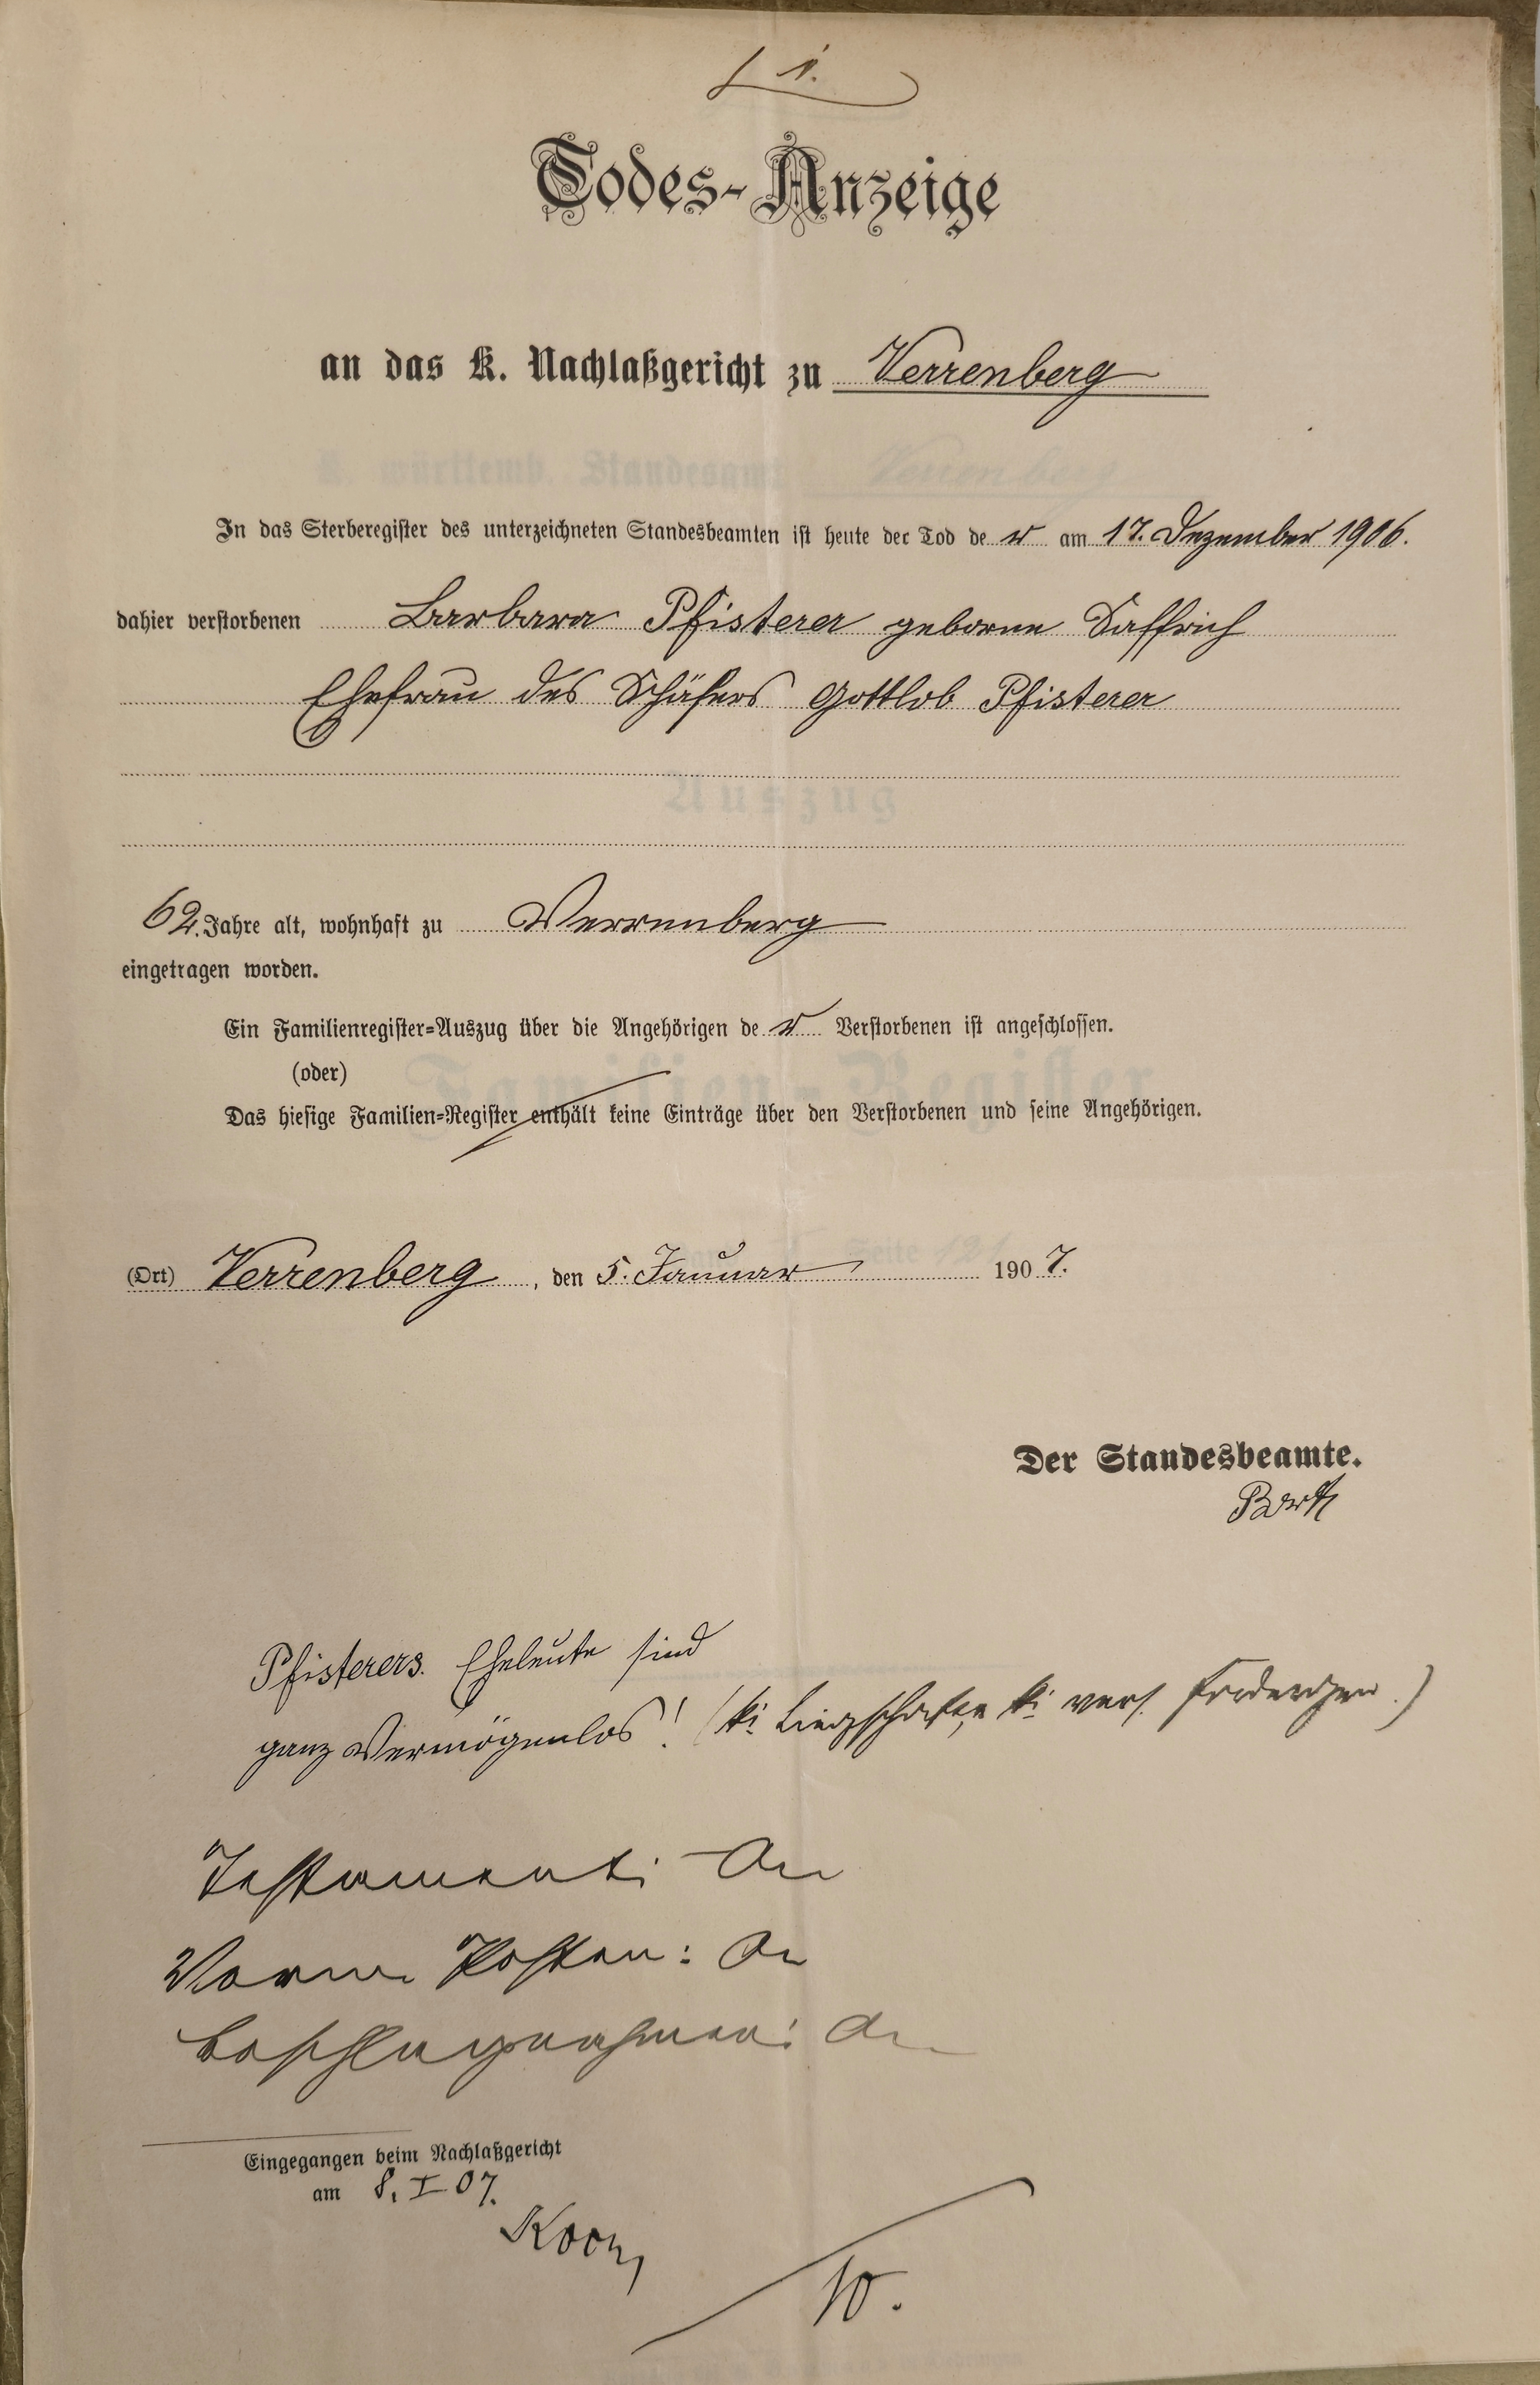 1.
Todes-Anzeige
an das K. Nachlaßgericht zu Verrenberg
In das Sterberegister des unterzeichneten Standesbeamten ist heute der Tod de r am 17. Dezember 1906.
dahier verstorbenen Barbara Pfisterer geborne Saffrich
Ehefrau des Schäfers Gottlob Pfisterer
62. Jahre alt, wohnhaft zu Verrenberg
eingetragen worden.
Ein Familienregister=Auszug über die Angehörigen de r Verstorbenen ist angeschlossen.
(oder)
Das hiesige Familien=Register enthält keine Einträge über den Verstorbenen und seine Angehörigen.
(Ort) Verrenberg, den 5. Januar 190 7.
Der Standesbeamte.
Barth
Pfisterers. Eheleute sind
ganz Vermögenlos! (ki. Liegschaften, ki. vers. Forderungen.)
Testament:
Posten:
Beschlagnahmen:
Eingegangen beim Nachlaßgericht
am 8. I 07.